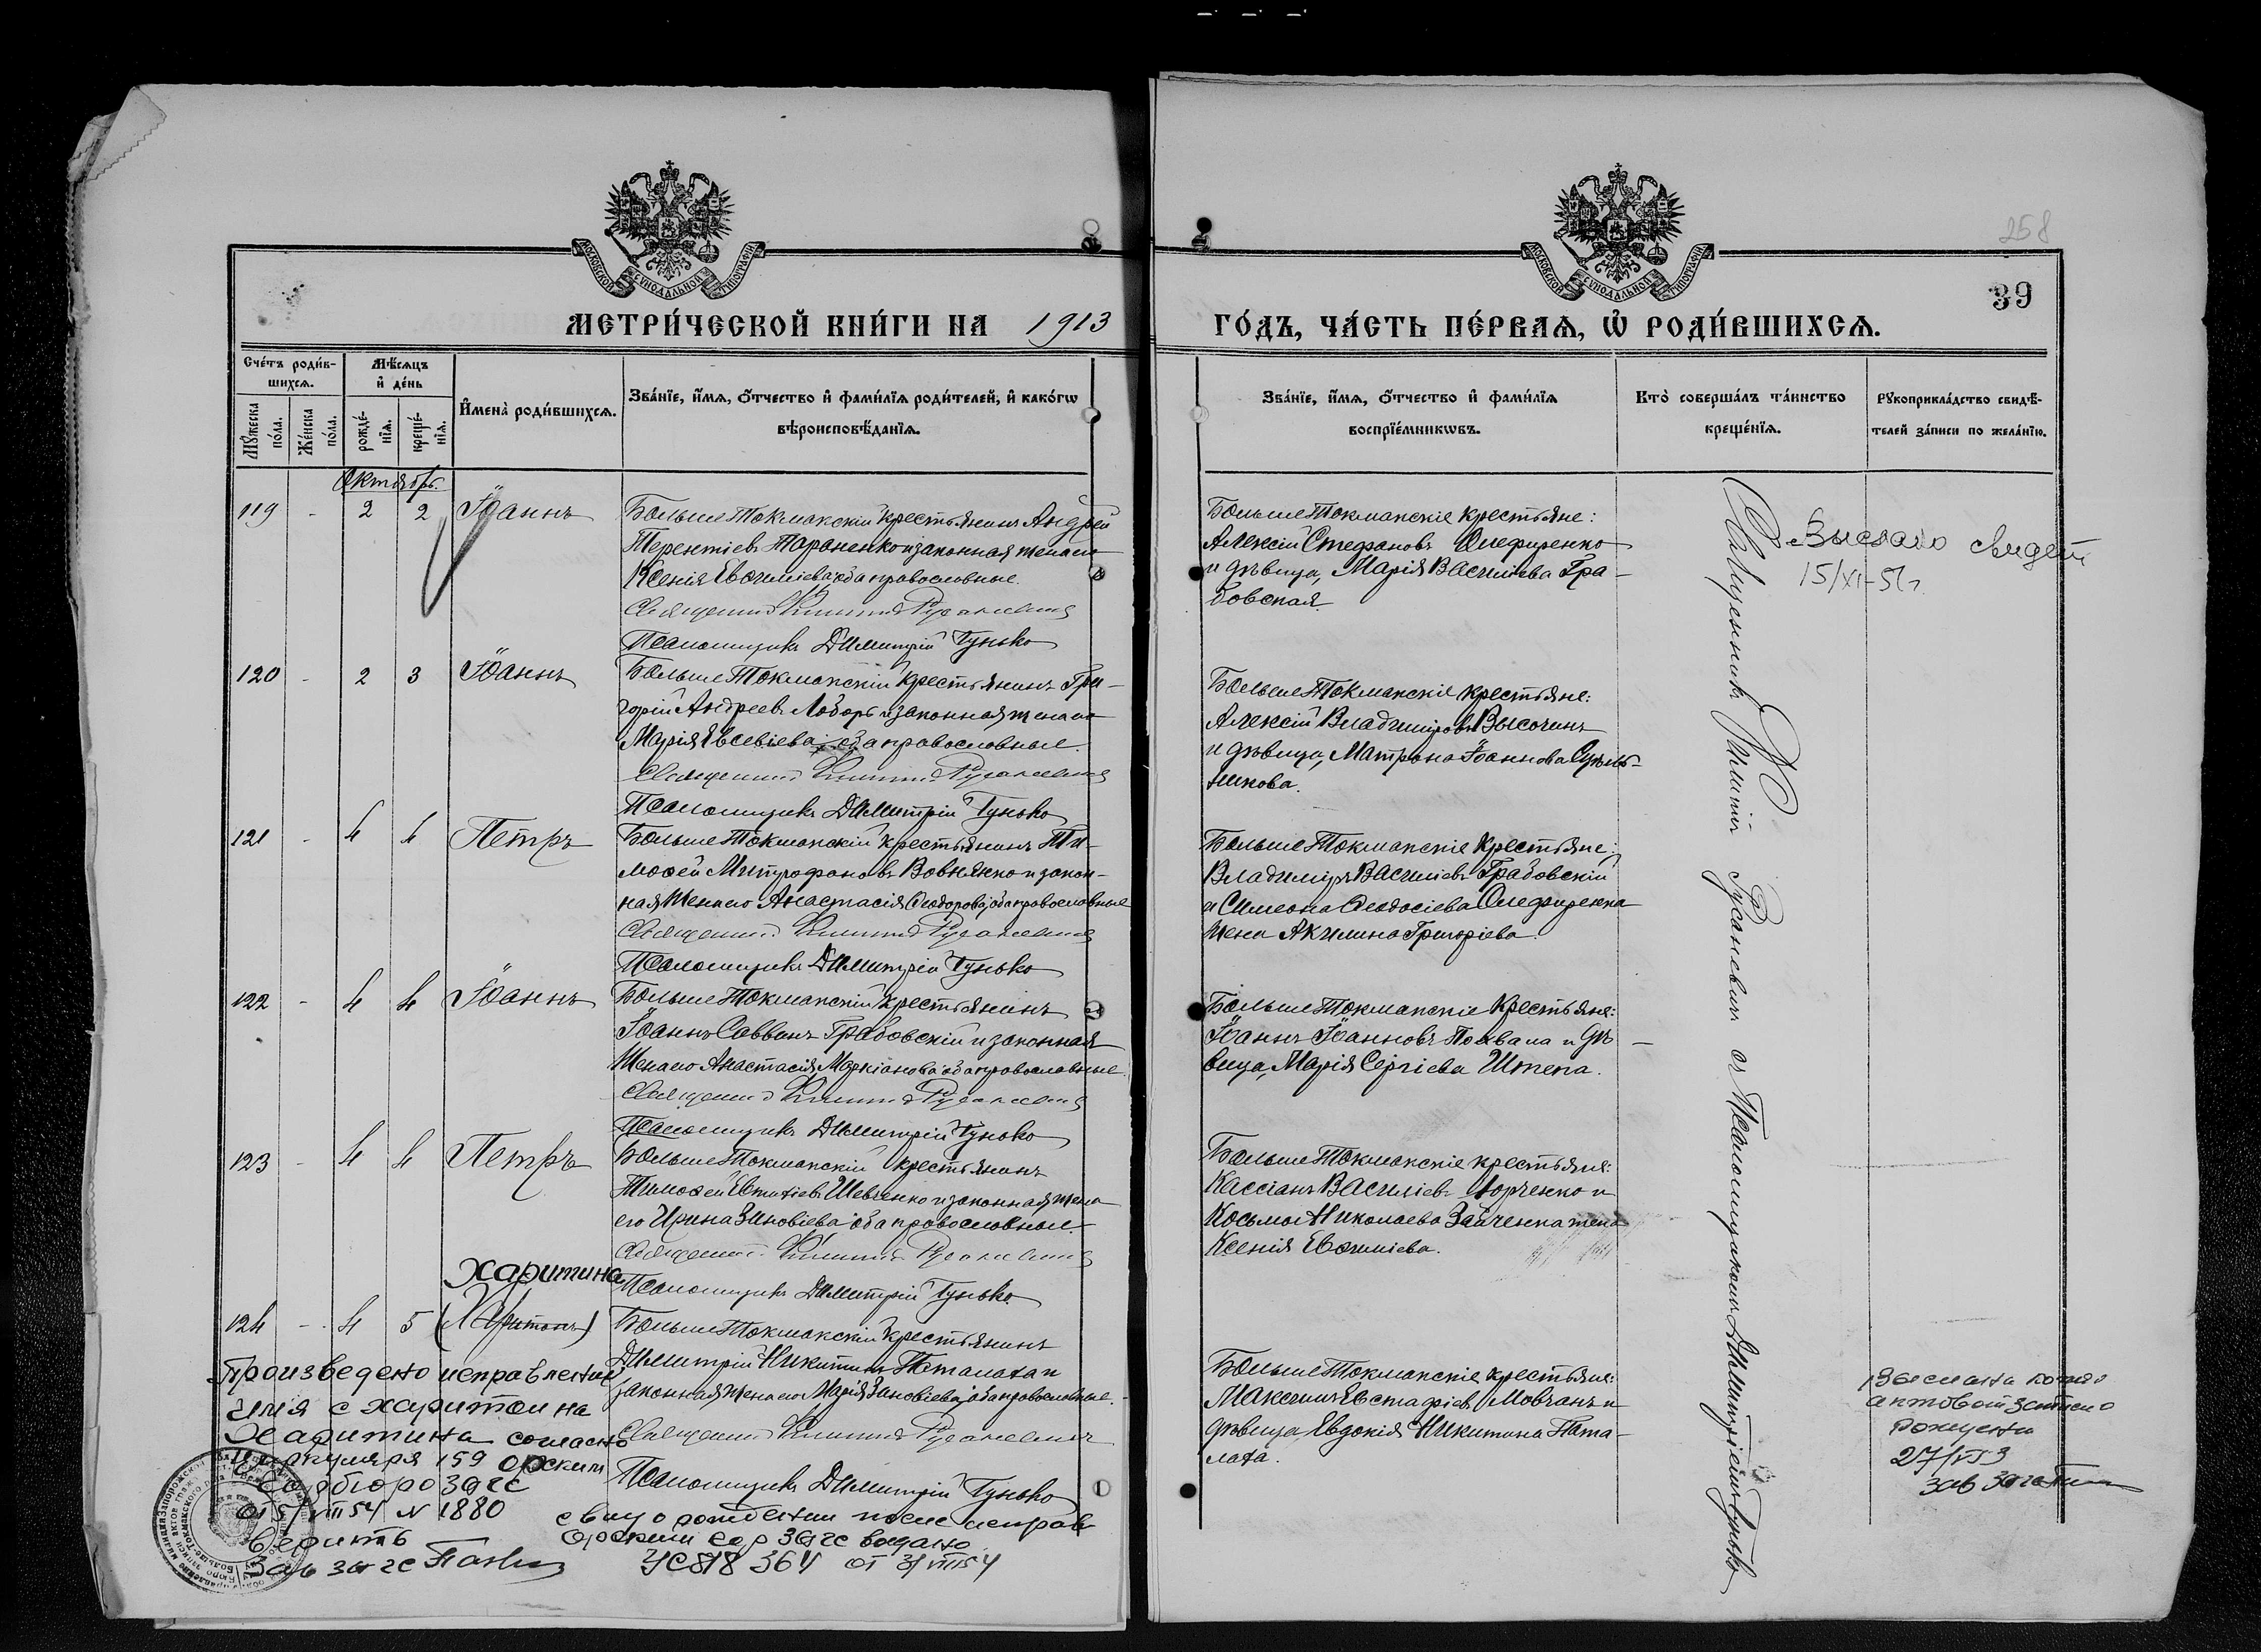 258
39
МОСКОВСКОЙ СѴНОДАЛЬНОЙ ТИПОГРАФІИ
МОСКОВСКОЙ СѴНОДАЛЬНОЙ ТИПОГРАФІИ
МЕТРИ́ЧЕСКОЙ КНИ́ГИ НА 1913
ГО́ДЪ, ЧА́СТЬ ПЕ́РВАѦ, Ѡ҆ РОДИ́ВШИХСѦ.
Сче́тъ роди́в-
шихсѧ.
Мѣ́сѧцъ
и҆ де́нь
Мꙋ́жеска
по́ла.
Же́нска
по́ла.
рожде́-
нїѧ.
креще́-
нїѧ.
И҆мена̀ роди́вшихсѧ.
Зва́нїе, и҆́мѧ, ѻ҆́тчество и҆ фами́лїѧ роди́телей, и҆ како́гѡ
вѣроисповѣ́данїѧ.
Зва́нїе, и҆́мѧ, ѻ҆́тчество и҆ фами́лїѧ
воспрїе́мникѡвъ.
Кто̀ соверша́лъ та́инство
креще́нїѧ.
Рꙋкоприкла́дство свидѣ́-
телей за́писи по жела́нїю.
Октябрь.
119 - 2 2 Іоаннъ
Больше Токмакскій крестьянинъ Андрей
Терентіевъ Тараненко и законная жена его
Ксенія Евѳиміева, оба православные.
Священникъ Климентъ Русаневичъ
Псаломщикъ Димитрій Гунько
Больше Токмакскіе крестьяне:
Алексій Стефановъ Олефиренко
и дѣвица, Марія Васильева Гра-
бовская.
Выслано
15/XI-51г.
120 - 2 3 Іоаннъ
Больше Токмакскій крестьянинъ Гри-
горій Андреевъ Лоборь и законная жена его
Марія Евсевіева, оба православные.
Священникъ Климентъ Русаневичъ
Псаломщикъ Димитрій Гунько
Больше Токмакскіе крестьяне:
Алексій Владиміровъ Высочинъ
и дѣвица, Матрона Іоаннова
никова.
121 - 4 4 Петръ
Больше Токмакскій крестьянинъ Ти-
моѳей Митрофановъ Вовнянко и закон-
ная жена его Анастасія Ѳеодорова, оба православные
Священникъ Климентъ Русаневичъ
Псаломщикъ Димитрій Гунько
Больше Токмакскіе крестьяне:
Владиміръ Васильевъ Грабовскій
и Симеона Ѳеодосіева Олефиренка
жена Акилина Григоріева.
122 - 4 4 Іоаннъ
Больше Токмакскій крестьянинъ
Іоаннъ Саввинъ Грабовскій и законная
жена его Анастасія Маркіанова, оба православные.
Священникъ Климентъ Русаневичъ
Псаломщикъ Димитрій Гунько
Больше Токмакскіе крестьяне:
Іоаннъ Іоанновъ и дѣ-
вица, Марія Сергіева Штепа.
123 - 4 4 Петръ
Больше Токмакскій крестьянинъ
Тимоѳей Евтихіевъ Шевченко и законная жена
его Ирина Зиновіева, оба православные.
Священникъ Климентъ Русаневичъ
Псаломщикъ Димитрій Гунько
Больше Токмакскіе крестьяне:
Кассіанъ Васильевъ и
Космы Николаева Зайченка жена
Ксенія Евѳиміева.
Харитина
124 - 4 5 (Харитонъ)
Больше Токмакскій крестьянинъ
Димитрій Никитинъ Паталаха и
законная жена его Марія Зиновіева, оба православные.
Священникъ Климентъ Русаневичъ
Псаломщикъ Димитрій Гунько
Больше Токмакскіе крестьяне:
Максимъ Евстафіевъ Мовчанъ и
дѣвица, Евдокія Никитина Пата-
лаха.
Священникъ Климентъ Русаневичъ съ Псаломщикомъ Димитріемъ Гунько
Произведено исправление
имя с харитон на
Харитина согласно
циркуляря 159
бюро Загс
от 5/VIII 54 N 1880
верить
Зав загс
после исправ
загс выдано
УС 818 364 от 31 VIII 54
Выслана копия
актовой записи
27/VI 3
зав загс